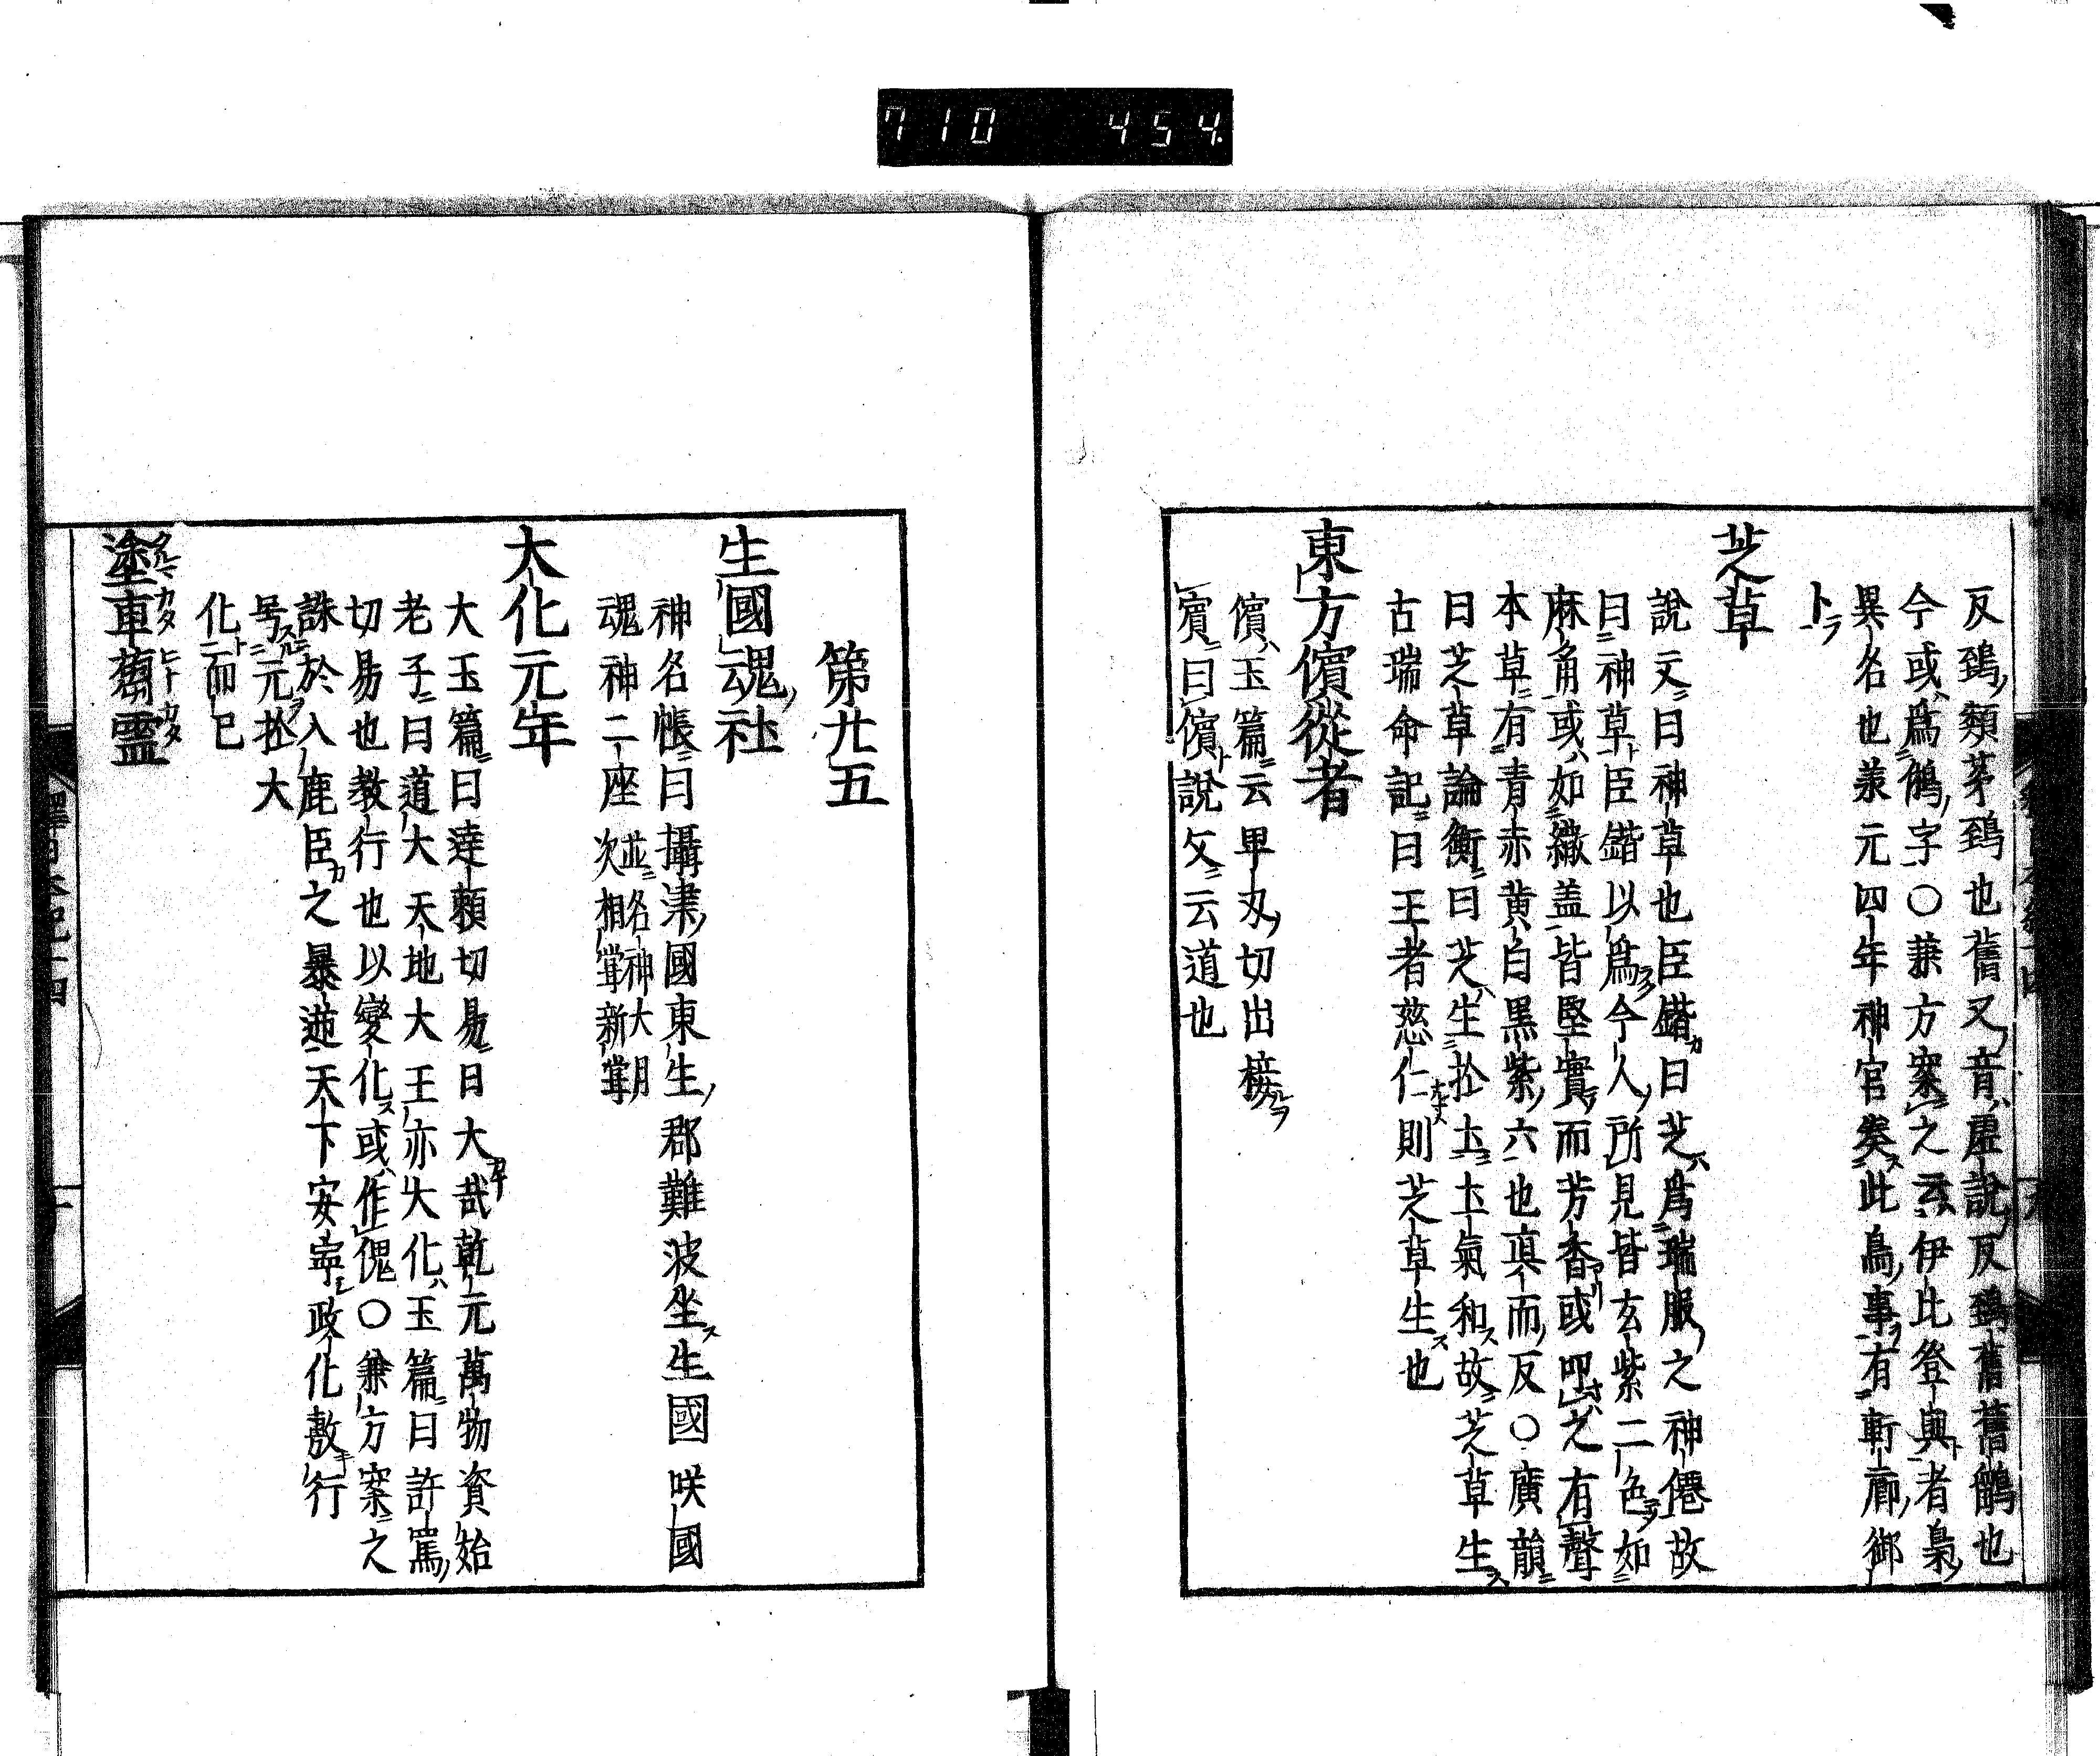 710 454
反鵄類茅鵄也舊又音虛說反鵄舊舊鵂也
今或爲鵂字〇兼方案之云伊比登與者梟
異名也兼元四年神官奏此鳥事有軒廊御
卜
芝草
說文曰神草也臣鍇曰芝爲瑞服之神僊故
曰神草臣鍇以爲今人所見皆玄紫二色如
麻角或如繖盖皆堅實而芳香或叩之有聲
本草有青赤黄白黒紫六也真而反〇廣韻
曰芝草論衡曰芝生於土土氣和故芝草生
古瑞命記曰王者慈仁則芝草生也
東方儐從者
儐玉篇云卑刄切出接
賓曰儐說文云道也
第廿五
生國魂社
神名帳曰攝津國東生郡難波坐生國咲國
魂神二座並名神大月次相甞新甞
大化元年
大玉篇曰達賴切易曰大哉乾元萬物資始
老子曰道大天地大王亦大化玉篇曰許罵
切易也教行也以變化或作傀〇兼方案之
誅於入鹿臣之暴逆天下安寧政化敷行
号元於大
化而已
塗車蒭靈